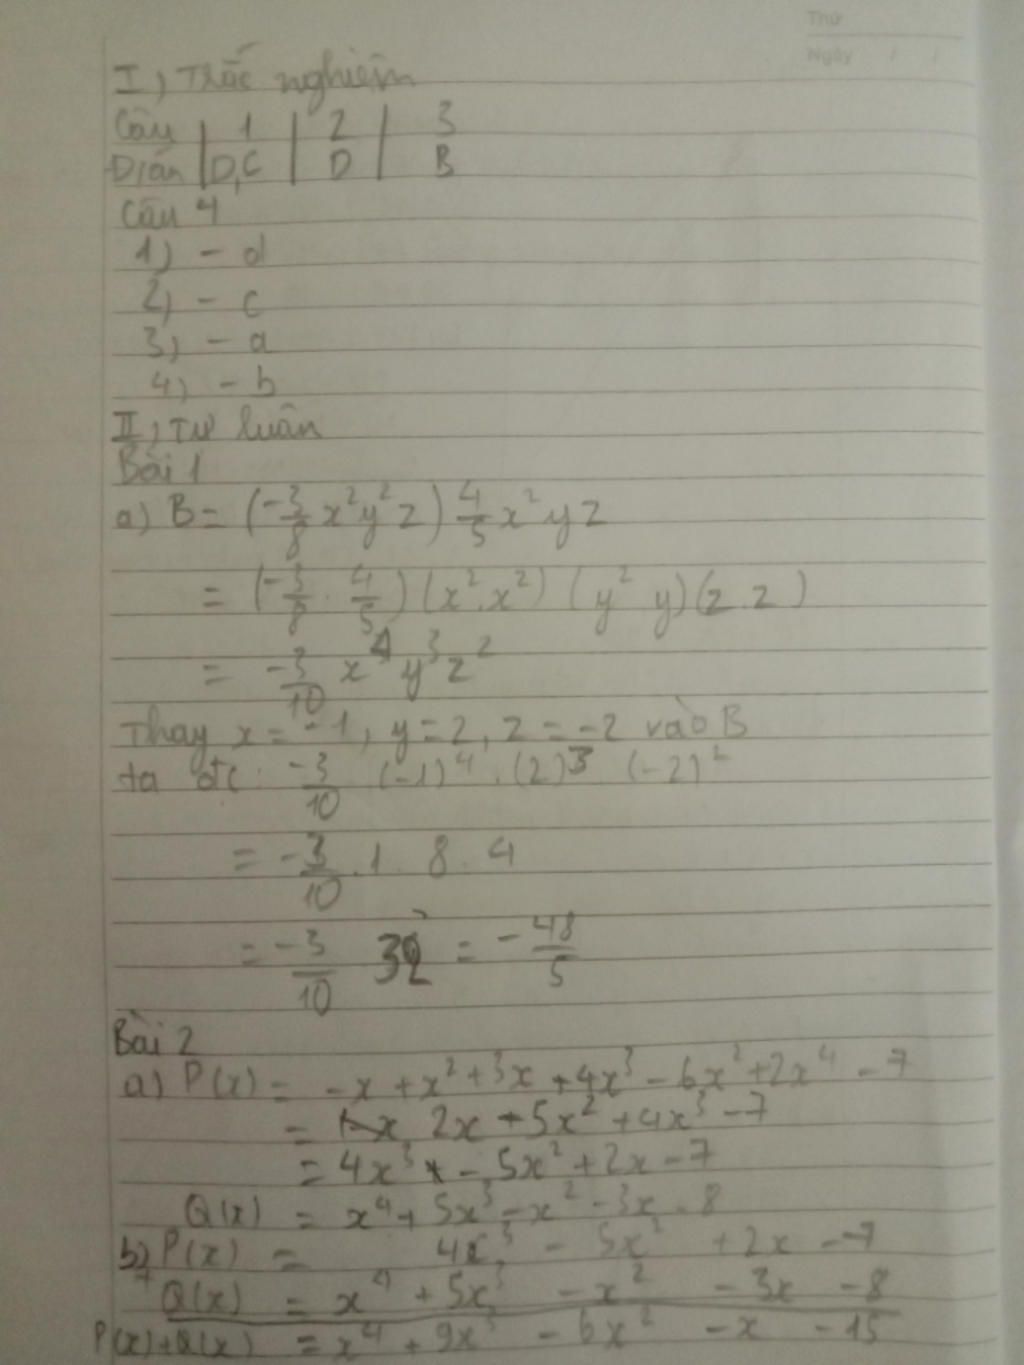 Thứ
Ngày / /
I, Trắc nghiệm
Câu | 1 | 2 | 3
Đ/án | D,C | D | B
Câu 4
1) - d
2) - c
3) - a
4) - b
II, Tự luận
Bài 1
a) B = (-3/8 x²y²z) 4/5 x²yz
= (-3/8 . 4/5) (x².x²) (y² y)(z.z)
= -3/10 x⁴y³z²
Thay x = -1, y = 2, z = -2 vào B
ta đc: -3/10 (-1)⁴ . (2)³ (-2)²
= -3/10 . 1 . 8 . 4
= -3/10 32 = -48/5
Bài 2
a) P(x) = -x + x² + 3x + 4x³ - 6x² + 2x⁴ - 7
= 2x - 5x² + 4x³ - 7
= 4x³ - 5x² + 2x - 7
Q(x) = x⁴ + 5x³ - x² - 3x - 8
b) P(x) = 4x³ - 5x² + 2x - 7
+ Q(x) = x⁴ + 5x³ - x² - 3x - 8
P(x)+Q(x) = x⁴ + 9x³ - 6x² - x - 15